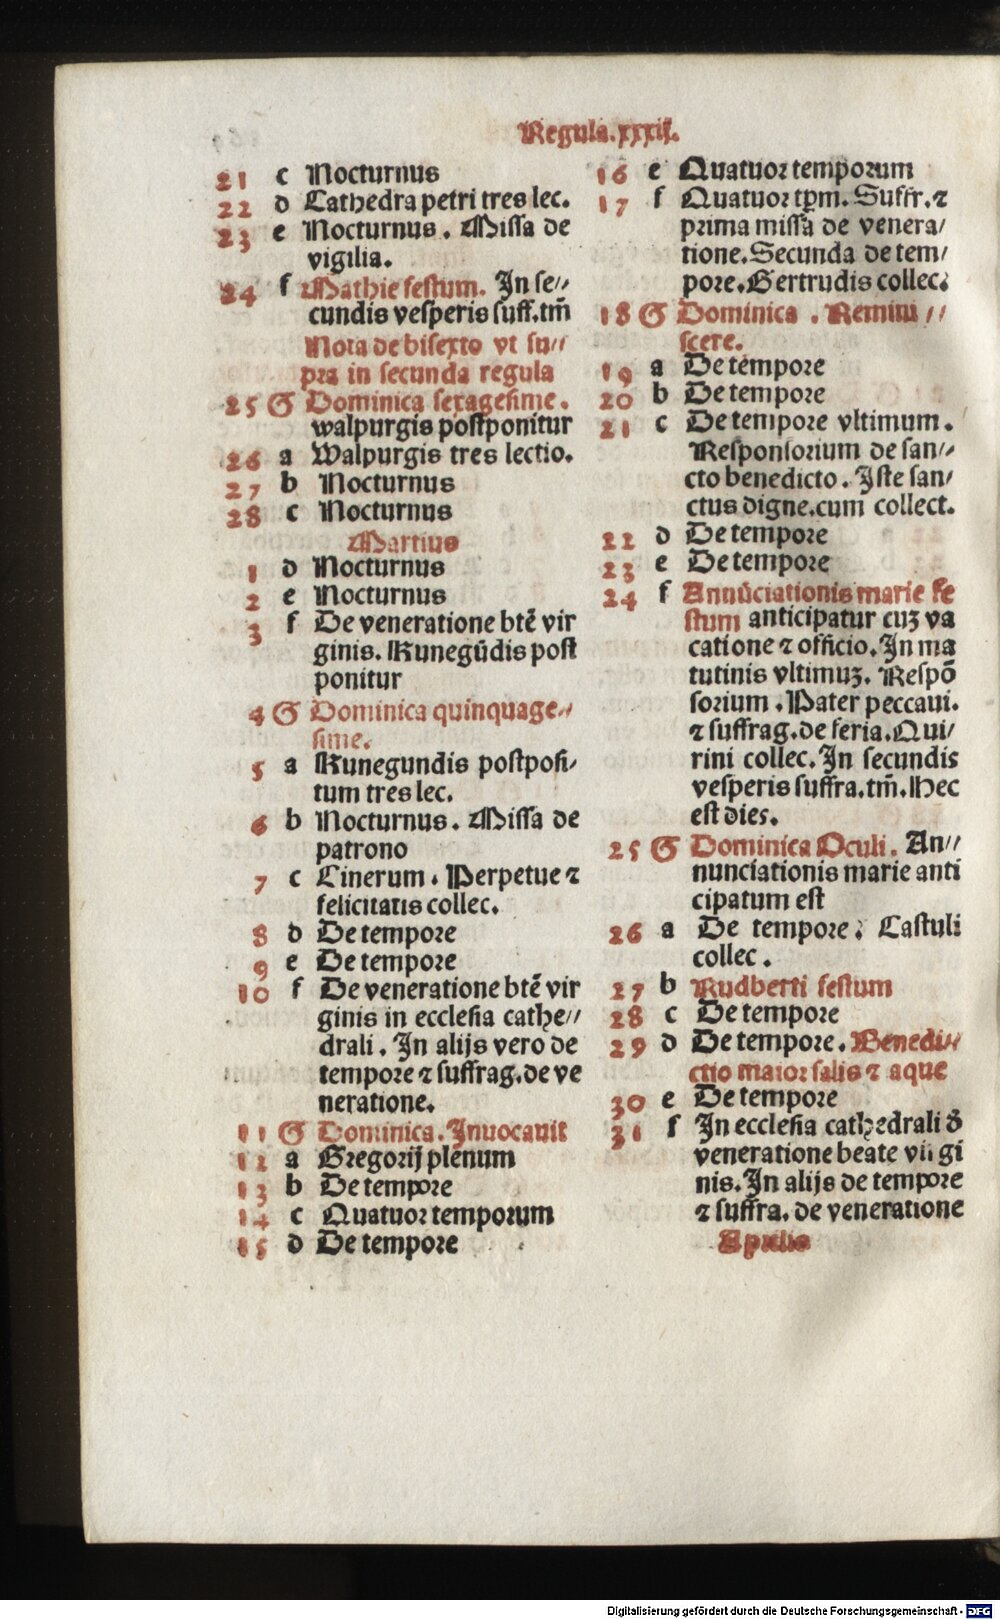 Regula.xxxij.
21 c Nocturnus
22 d Cathedra petri tres lec.
23 e Nocturnus. Missa de
vigilia.
24 f Mathie festum. In se//
cundis vesperis suff.tm̄
Nota de bisexto vt su//
pra in secunda regula
25 G Dominica sexagesime.
walpurgis postponitur
26 a Walpurgis tres lectio.
27 b Nocturnus
28 c Nocturnus
Martius
1 d Nocturnus
2 e Nocturnus
3 f De veneratione btē vir
ginis. Kunegūdis post
ponitur
4 G Dominica quinquage//
sime.
5 a Kunegundis postposi/
tum tres lec.
6 b Nocturnus. Missa de
patrono
7 c Cinerum. Perpetue ⁊
felicitatis collec.
8 d De tempore
9 e De tempore
10 f De veneratione btē vir
ginis in ecclesia cathe//
drali. In alijs vero de
tempore ⁊ suffrag.de ve
neratione.
11 G Dominica. Inuocauit
12 a Gregorij plenum
13 b De tempore
14 c Quatuor temporum
15 d De tempore
16 e Quatuor temporum
17 f Quatuor tpm. Suffr.⁊
prima missa de venera/
tione. Secunda de tem/
pore. Gertrudis collec.
18 G Dominica. Remini//
scere.
19 a De tempore
20 b De tempore
21 c De tempore vltimum.
Responsorium de san//
cto benedicto. Iste san/
ctus digne.cum collect.
22 d De tempore
23 e De tempore
24 f Annūciationis marie fe
stum anticipatur cuꝫ va
catione ⁊ officio. In ma
tutinis vltimuꝫ. Respō
sorium. Pater peccaui.
⁊ suffrag.de feria. Qui/
rini collec. In secundis
vesperis suffra.tm̄. Hec
est dies.
25 G Dominica Oculi. An//
nunciationis marie anti
cipatum est
26 a De tempore. Castuli
collec.
27 b Rudberti festum
28 c De tempore
29 d De tempore. Benedi//
ctio maior salis ⁊ aque
30 e De tempore
31 f In ecclesia cathedrali d̄
veneratione beate virgi
nis. In alijs de tempore
⁊ suffra. de veneratione
Aprilis
Digitalisierung gefördert durch die Deutsche Forschungsgemeinschaft - DFG